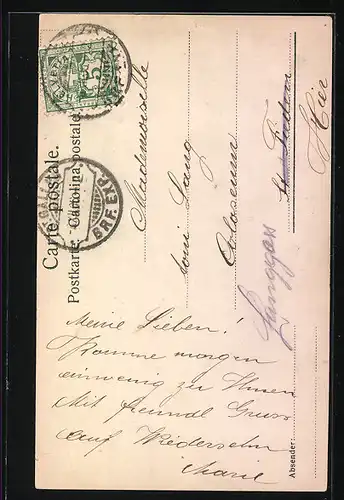 Carte postale.
Postkarte. - Cartolina postale.
HELVETIA
5
BRF. EXP.
Mademoiselle
Lang
Hier
Langgass
Absender:
Meine Lieben!
Komme morgen
einwenig zu Ihnen
Mit freundl Gruss
Auf Wiedersehn
Marie